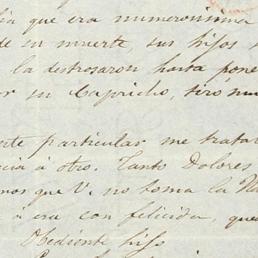 que era numerosisima
de su muerte, sus hijos
la destrosaron hasta pone
su Capricho, siró mu
nte particular me tratar
cia á otro. Tanto Dolores
nos que V. no toma la
á era con felicidad, que
Obediente hijo